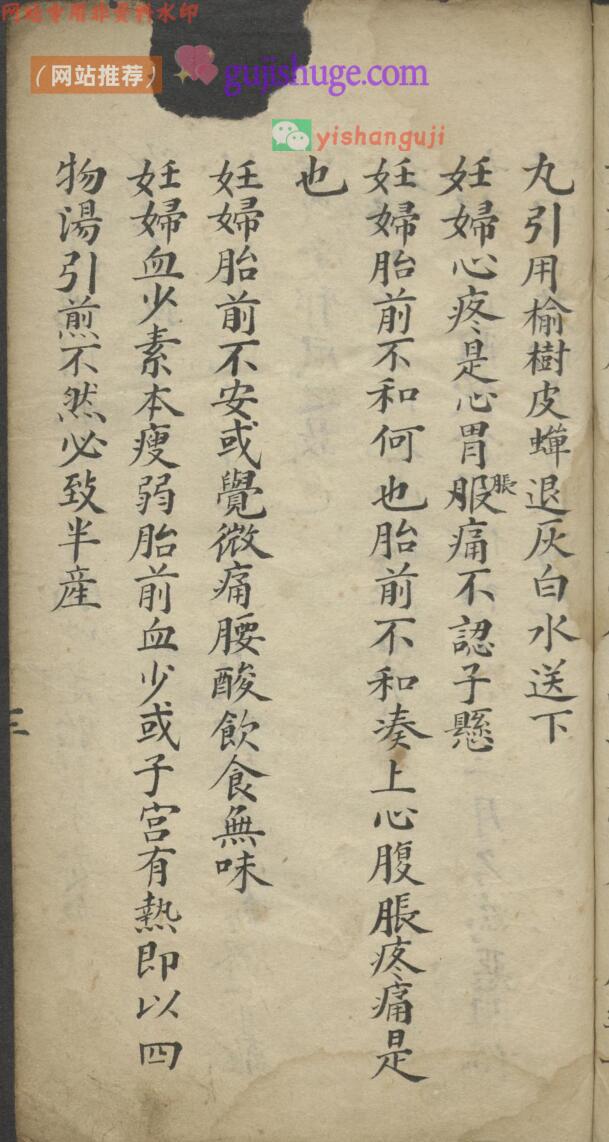 网站专用非资料水印
（网站推荐） gujishuge.com
yishanguji
丸引用榆樹皮蟬退灰白水送下
妊婦心疼是心胃服脹痛不認子懸
妊婦胎前不和何也胎前不和湊上心腹脹疼痛是
也
妊婦胎前不安或覺微痛腰酸飲食無味
妊婦血少素本瘦弱胎前血少或子宮有熱即以四
物湯引煎不然必致半産
三